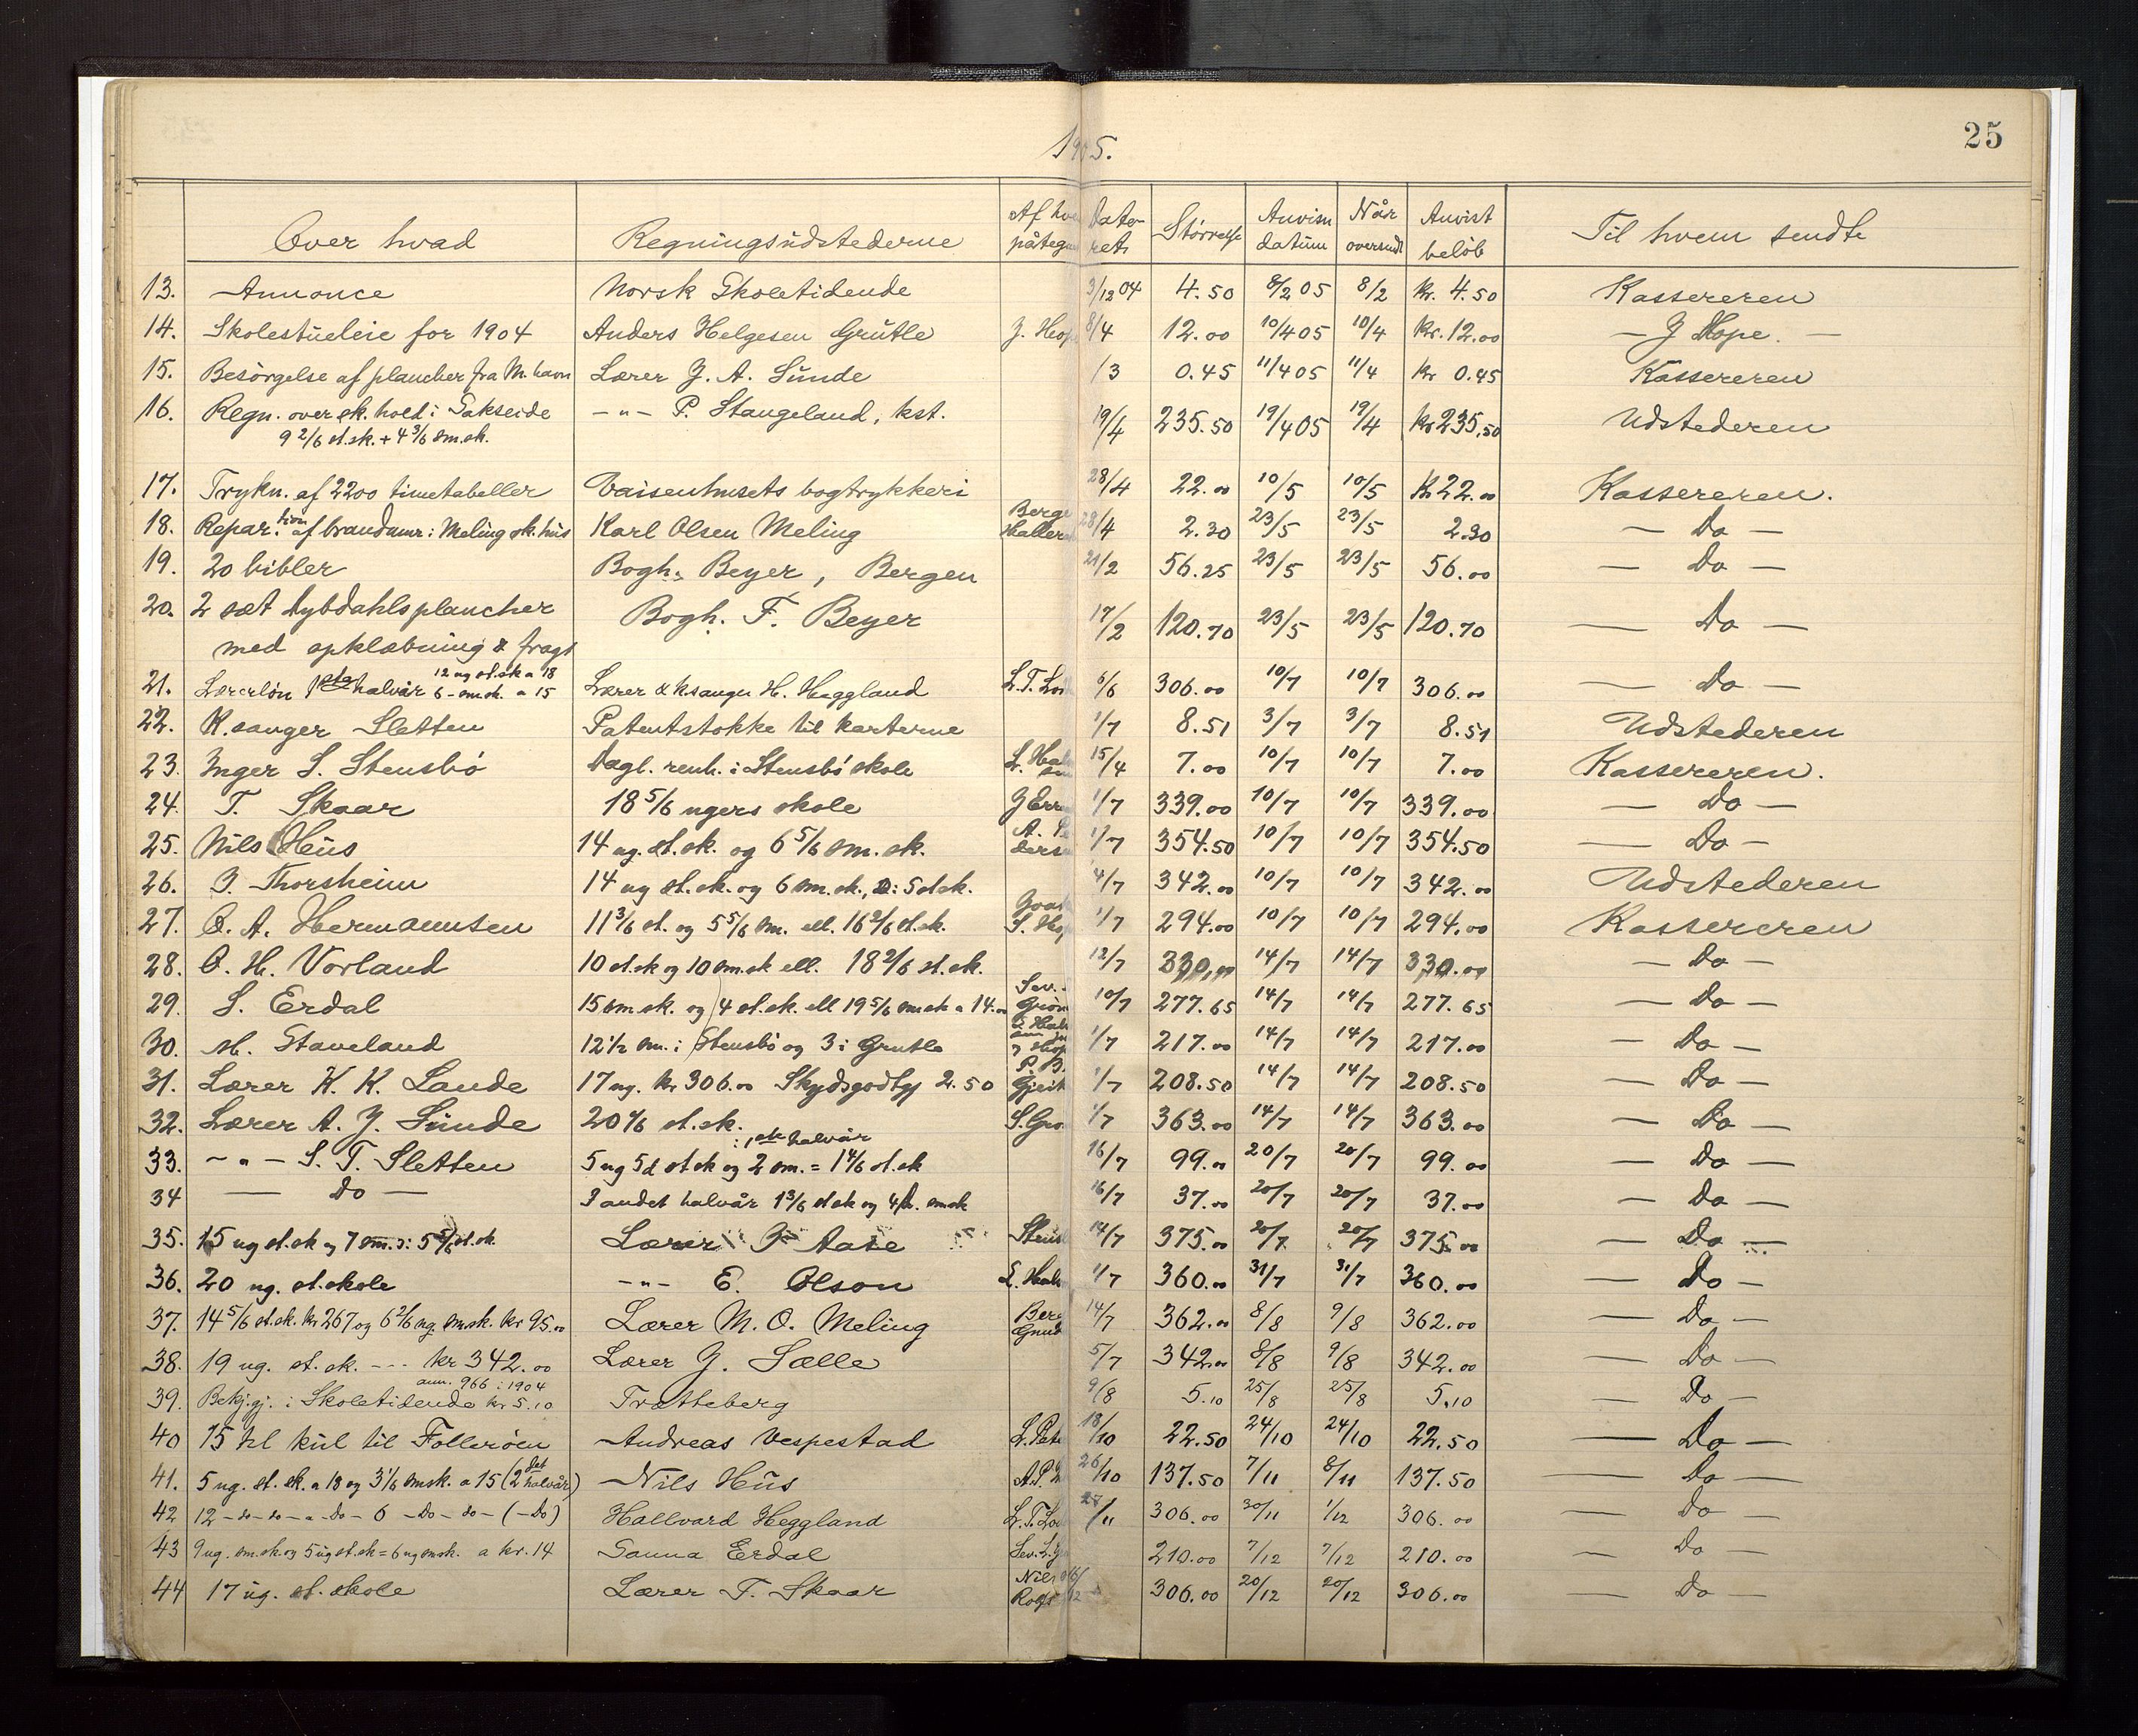 25
1905.
Over hvad Regningsudstederne Af hve påtegn Date- ret. Størrelse Anvisn datum Når oversendt Anvist beløb Til hvem sendte
13. Annonce Norsk Skoletidende 3/12 04 4.50 8/2 05 8/2 kr. 4.50 Kassereren
14. Skolestueleie for 1904 Anders Helgesen Grutle J. Hop 8/4 12.00 10/4 05 10/4 kr. 12.00 — J Hope. —
15. Besørgelse af plancher fra M. havn Lærer J. A. Sunde /3 0.45 11/4 05 11/4 kr 0.45 Kassereren
16. Regn. over sk. hold i Sakseide —"— P. Stangeland, kst. 19/4 235.50 19/4 05 19/4 kr 235.50 Udstederen
9 2/6 st.sk. + 4 3/6 sm.sk.
17. Trykn. af 2200 timetabeller Vaisenhusets bogtrykkeri 28/4 22.00 10/5 10/5 kr 22.00 Kassereren.
18. Repartion af brandmur i Meling sk. hus Karl Olsen Meling 28/4 2.30 23/5 23/5 2.30 — Do —
19. 20 bibler Bogh. Beyer, Bergen 21/2 56.25 23/5 23/5 56.00 — Do —
20. 2 sæt Dybdahls plancher Bogh. F. Beyer 17/2 120.70 23/5 23/5 120.70 — Do —
med opklæbning & fragt
21. Lærerløn 1ste halvår 12 ug st.sk a 18 6 - sm.sk. a 15 Lærer & ksanger H. Heggland L.T. 6/6 306.00 10/7 10/7 306.00 — Do —
22. K.sanger Sletten Patentstokke til karterne 1/7 8.51 3/7 3/7 8.51 Udstederen
23. Inger S. Stensbø Dagl. renh. i Stensbø skole 15/4 7.00 10/7 10/7 7.00 Kassereren.
24. T. Skaar 18 5/6 ugers skole 1/7 339.00 10/7 10/7 339.00 — Do —
25. Nils Hus 14 ug. st.sk. og 6 5/6 sm.sk. 1/7 354.50 10/7 10/7 354.50 — Do —
26. J. Thorsheim 14 ug st.sk. og 6 sm.sk., ɔ: 5 st.sk. 4/7 342.00 10/7 10/7 342.00 Udstederen
27. O. A. Hermannsen 11 3/6 st. og 5 5/6 sm. ell. 16 2/6 st.sk. 1/7 294.00 10/7 10/7 294.00 Kassereren
28. O. H. Vorland 10 st.sk og 10 sm.sk ell. 18 2/6 st.sk. 12/7 330.00 14/7 14/7 330.00 — Do —
29. S. Erdal 15 sm.sk. og 4 st.sk. ell 19 5/6 sm.sk a 14.00 10/7 277.65 14/7 14/7 277.65 — Do —
30. M. Staveland 12 1/2 sm. i Stensbø og 3 i Grutle 1/7 217.00 14/7 14/7 217.00 — Do —
31. Lærer K. K. Lande 17 ug. kr 306.00 Skydsgodtgj 2.50 1/7 208.50 14/7 14/7 208.50 — Do —
32. Lærer A. J. Sunde 20 1/6 st.sk. 1/7 363.00 14/7 14/7 363.00 — Do —
33. —"— S. T. Sletten 5 ug 5d st sk og 2 sm. = 1 4/6 st.sk i 1ste halvår 16/7 99.00 20/7 20/7 99.00 — Do —
34 — Do — I andet halvår 1 3/6 st sk og 4 sm sk 16/7 37.00 20/7 20/7 37.00 — Do —
35. 15 ug st.sk og 7 sm. ɔ: 5 5/6 st.sk. Lærer J Aase 14/7 375.00 20/7 20/7 375.00 — Do —
36. 20 ug. st.skole —"— E. Olson 1/7 360.00 31/7 31/7 360.00 — Do —
37. 14 5/6 st.sk. kr 267 og 6 2/6 ug. sm.sk. kr 95.00 Lærer M. O. Meling 14/7 362.00 8/8 9/8 362.00 — Do —
38. 19 ug. st. sk. --- kr 342.00 Lærer J. Sælle 5/7 342.00 8/8 9/8 342.00 — Do —
39. Bekjgj. i Skoletidende kr 5.10 ann. 966 i 1904 Tratteberg 9/8 5.10 25/8 25/8 5.10 — Do —
40 15 hl kul til Follerøen Andreas Vespestad 18/10 22.50 24/10 24/10 22.50 — Do —
41. 5 ug. st. sk. a 18 og 3 1/6 smsk. a 15 (2det halvår) Nils Hus 26/10 137.50 7/11 8/11 137.50 — Do —
42 12 - do - do - a - Do - 6 - Do - do - (- Do) Hallvard Heggland 27/11 306.00 30/11 1/12 306.00 — Do —
43 9 ug. sm.sk og 5 ug st.sk = 6 ug smsk. a kr. 14 Sanna Erdal 210.00 7/12 7/12 210.00 — Do —
44 17 ug. st. skole Lærer T. Skaar 306.00 20/12 20/12 306.00 — Do —